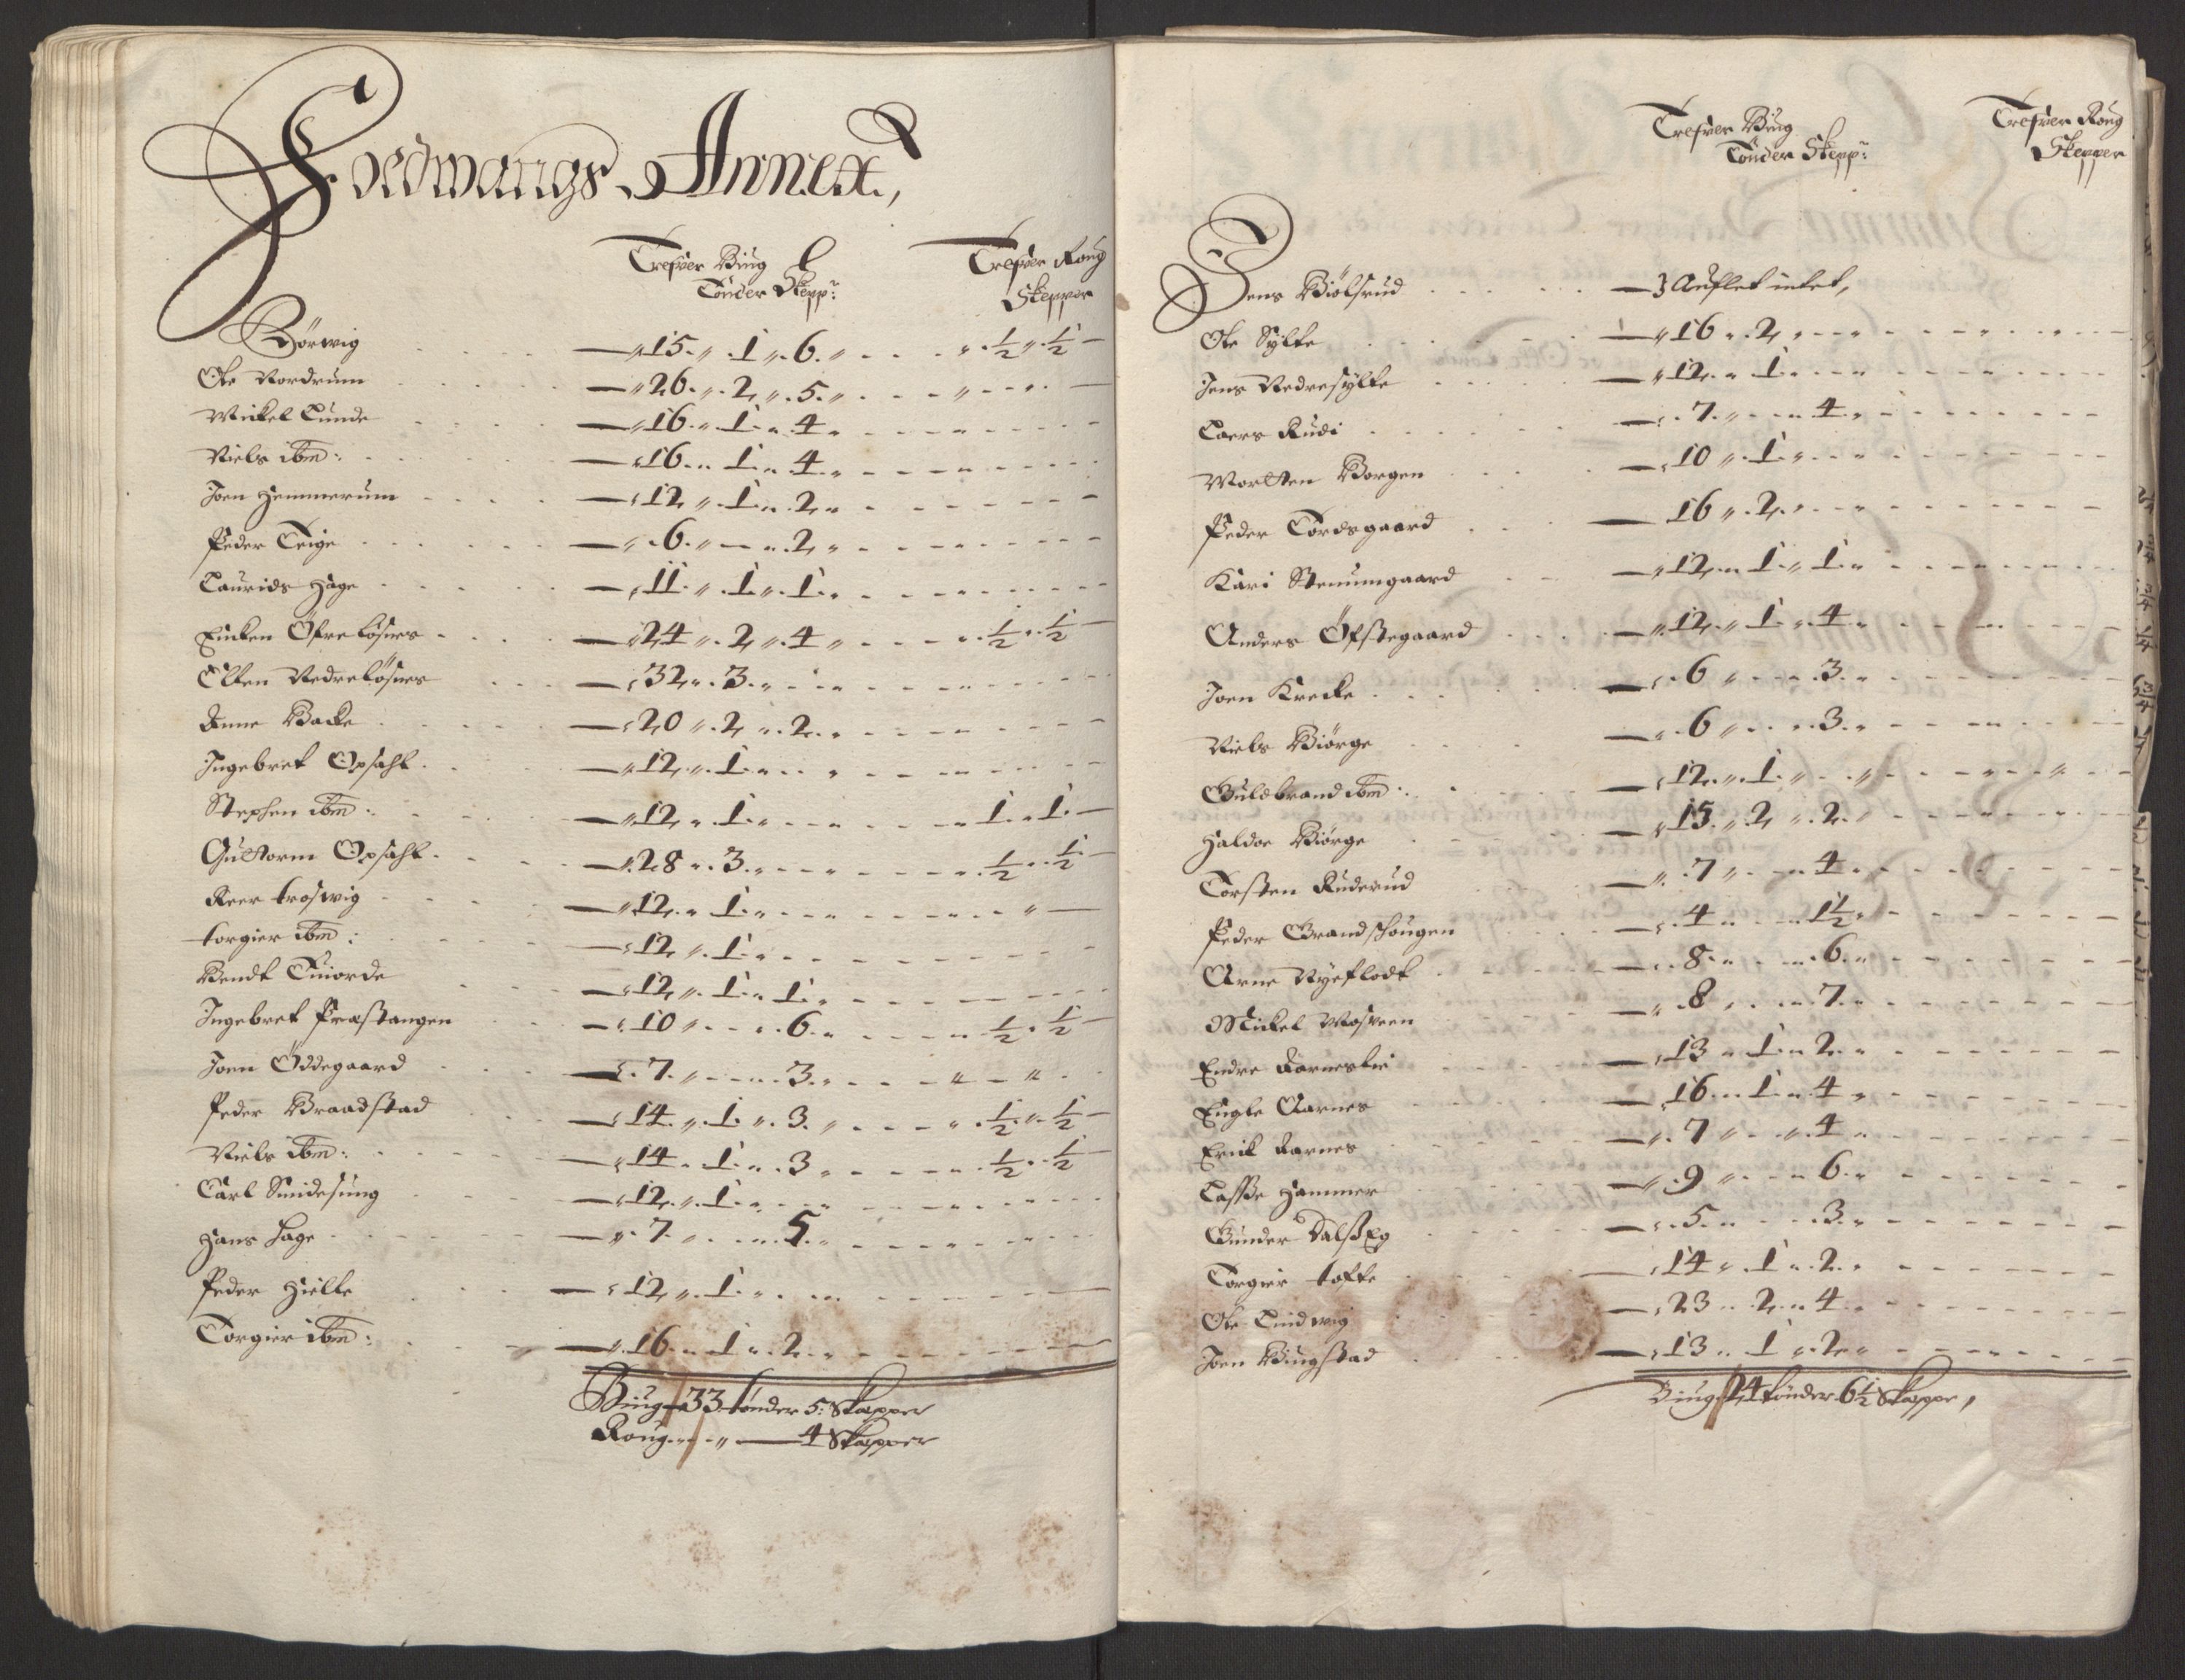 Fordwangs Annex,
Trefwer Biug Trefwer Roug
Tønder Skepp: Skepper
Børwig 15 1 6 ½ ½
Ole Nordrum 26 2 5
Michel Lunde 16 1 4
Niels ibm: 16 1 4
Joen Hemmerum 12 1 2
Peder Teige 6 2
Laurids Hage 11 1 1
Ellen Öfreløsnes 24 2 4 ½ ½
Ellen Nedreløsnes 32 3
Anne Backe 20 2 2
Ingebret Opsahl 12 1
Stephen ibm: 12 1 1 1
Guttorm Opsahl 28 3 ½ ½
Reer troswig 12 1
torgier ibm: 12 1
Bendt 12 1 1
Ingebret Præstangen 10 6 ½ ½
Joen Ödegaard 7 3
Peder Braadstad 14 1 3 ½ ½
Niels ibm: 14 1 3 ½ ½
Carl Smidesung 12 1
Hans Hage 7 5
Peder Hielle 12 1
Torgier ibm: 16 1 2
Biug 33 tønder 5 Skepper
Roug 4 Skepper
Trefwer Biug Trefwer Roug
Tønder Skepp: Skepper
Jens Biølsrud Auflet intet,
Ole Sylte 16 2
Jens Nedresylte 12 1
Laers Rudi 7 4
Morten Borgen 10 1
Peder Tordsgaard 16 2
Kari Stenumgaard 12 1 1
Anders Öfstegaard 12 1 4
Joen Krecke 6 3
Niels Biørge 6 3
Guldbrand ibm: 12 1
Haldor Biørge 15 2 2
Torsten Ruderud 7 4
Peder Brandshougen 4 1½
Arne Nyeflodt 8 6
Michel Mosveen 8 7
Endre Aarneslie 13 1 2
Engle Aarnes 16 1 4
Erich Aarnes 7 4
Lasse Hammer 9 6
Gunder Dalseg 5 3
Torgier tofte 14 1 2
Ole Lindwig 23 2 4
Joen Bingstad 13 1 2
Biug 24 tønder 6½ Skeppe,